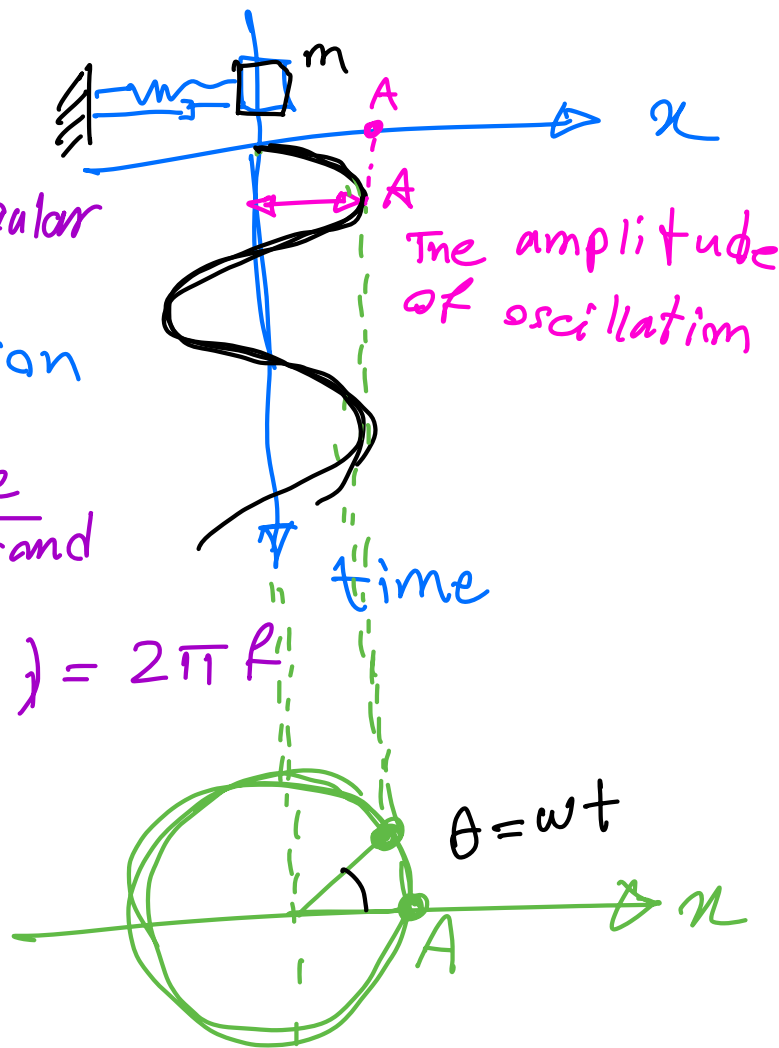 m
A
x
A
The amplitude
of oscillation
time
) = 2πf
θ = ωt
x
A